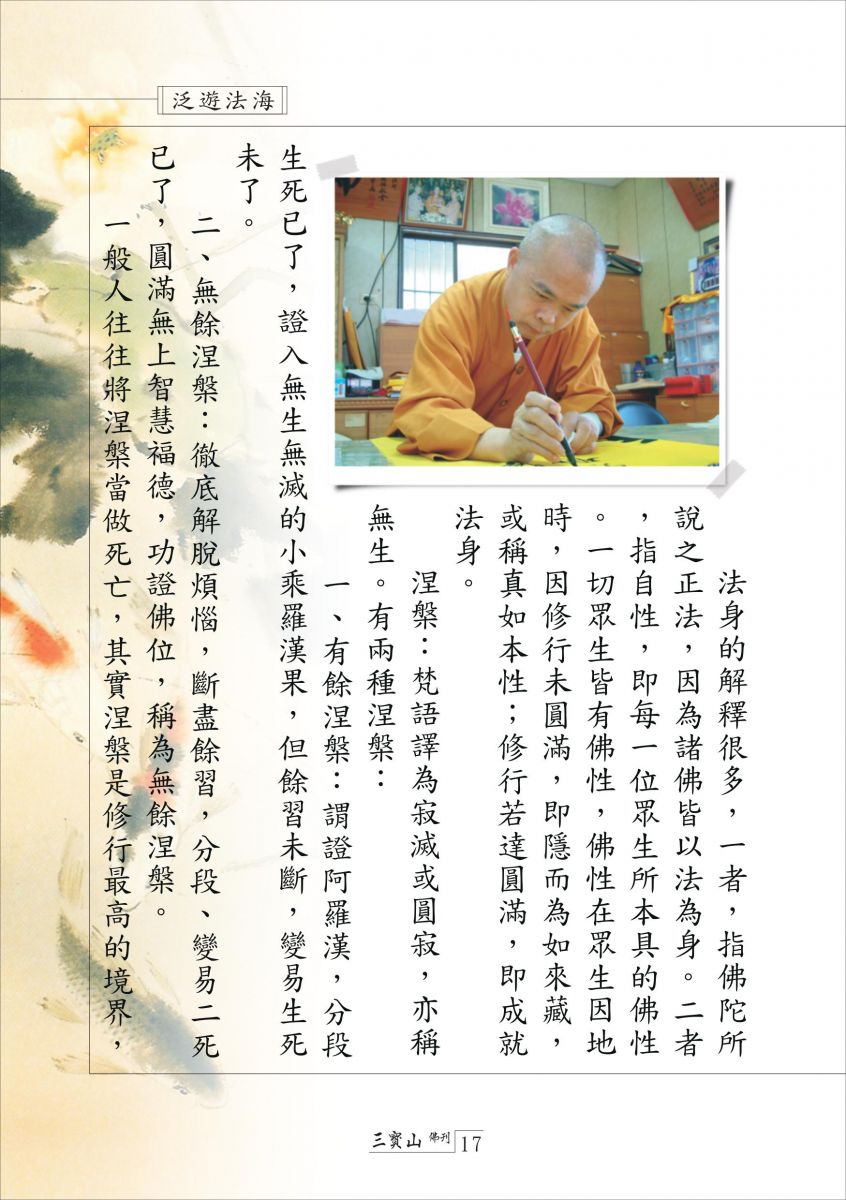 泛遊法海
法身的解釋很多，一者，指佛陀所
說之正法，因為諸佛皆以法為身。二者
，指自性，即每一位眾生所本具的佛性
。一切眾生皆有佛性，佛性在眾生因地
時，因修行未圓滿，即隱而為如來藏，
或稱真如本性；修行若達圓滿，即成就
法身。
涅槃：梵語譯為寂滅或圓寂，亦稱
無生。有兩種涅槃：
一、有餘涅槃：謂證阿羅漢，分段
生死已了，證入無生無滅的小乘羅漢果，但餘習未斷，變易生死
未了。
二、無餘涅槃：徹底解脫煩惱，斷盡餘習，分段、變易二死
已了，圓滿無上智慧福德，功證佛位，稱為無餘涅槃。
一般人往往將涅槃當做死亡，其實涅槃是修行最高的境界，
三寶山 佛刊 17